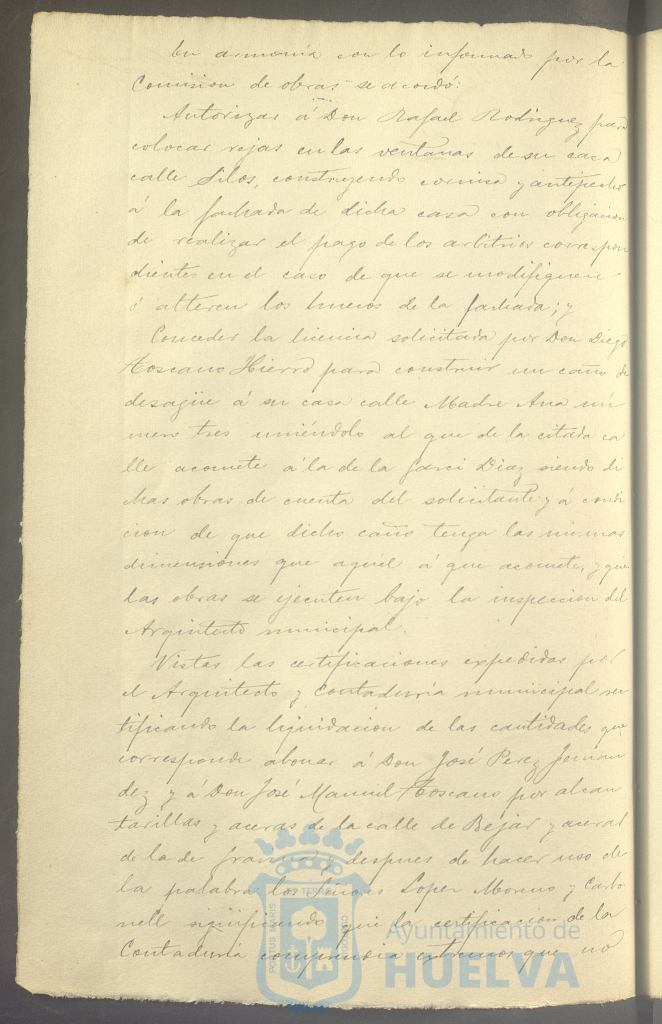 En armonía con lo informado por la
Comision de obras se acordó:
Autorizar á Don Rafael Rodriguez para
colocar rejas en las ventanas de su casa
calle Silos, construyendo cornisa y antepechos
á la fachada de dicha casa con obligacion
de realizar el pago de los arbitrios correspon
dientes en el caso de que se modifiquen
ó alteren los huecos de la fachada; y
Conceder la licencia solicitada por Don Diego
Toscano Hierro para construir un caño de
desagüe á su casa calle Madre Ana nú
mero tres uniéndolo al que de la citada ca
lle acomete á la de la Garci Diaz siendo di
chas obras de cuenta del solicitante y á condi
cion de que dicho caño tenga las mismas
dimensiones que aquel á que acomete, y que
las obras se ejecuten bajo la inspeccion del
Arquitecto municipal.
Vistas las certificaciones expedidas por
el Arquitecto y Contaduría municipal
tificando la liquidacion de las cantidades que
corresponde abonar á Don José Perez Fernan
dez y á Don José Manuel Toscano por alcan
tarillas y aceras de la calle de Béjar y aceras
de la de y despues de hacer uso de
la palabra los Señores Lopez Moreno y Carbo
nell significando que la certificacion de la
Contaduría comprendia extremos que no
PORTUS MARIS ET TERRAE CUSTODIA
Ayuntamiento de
HUELVA